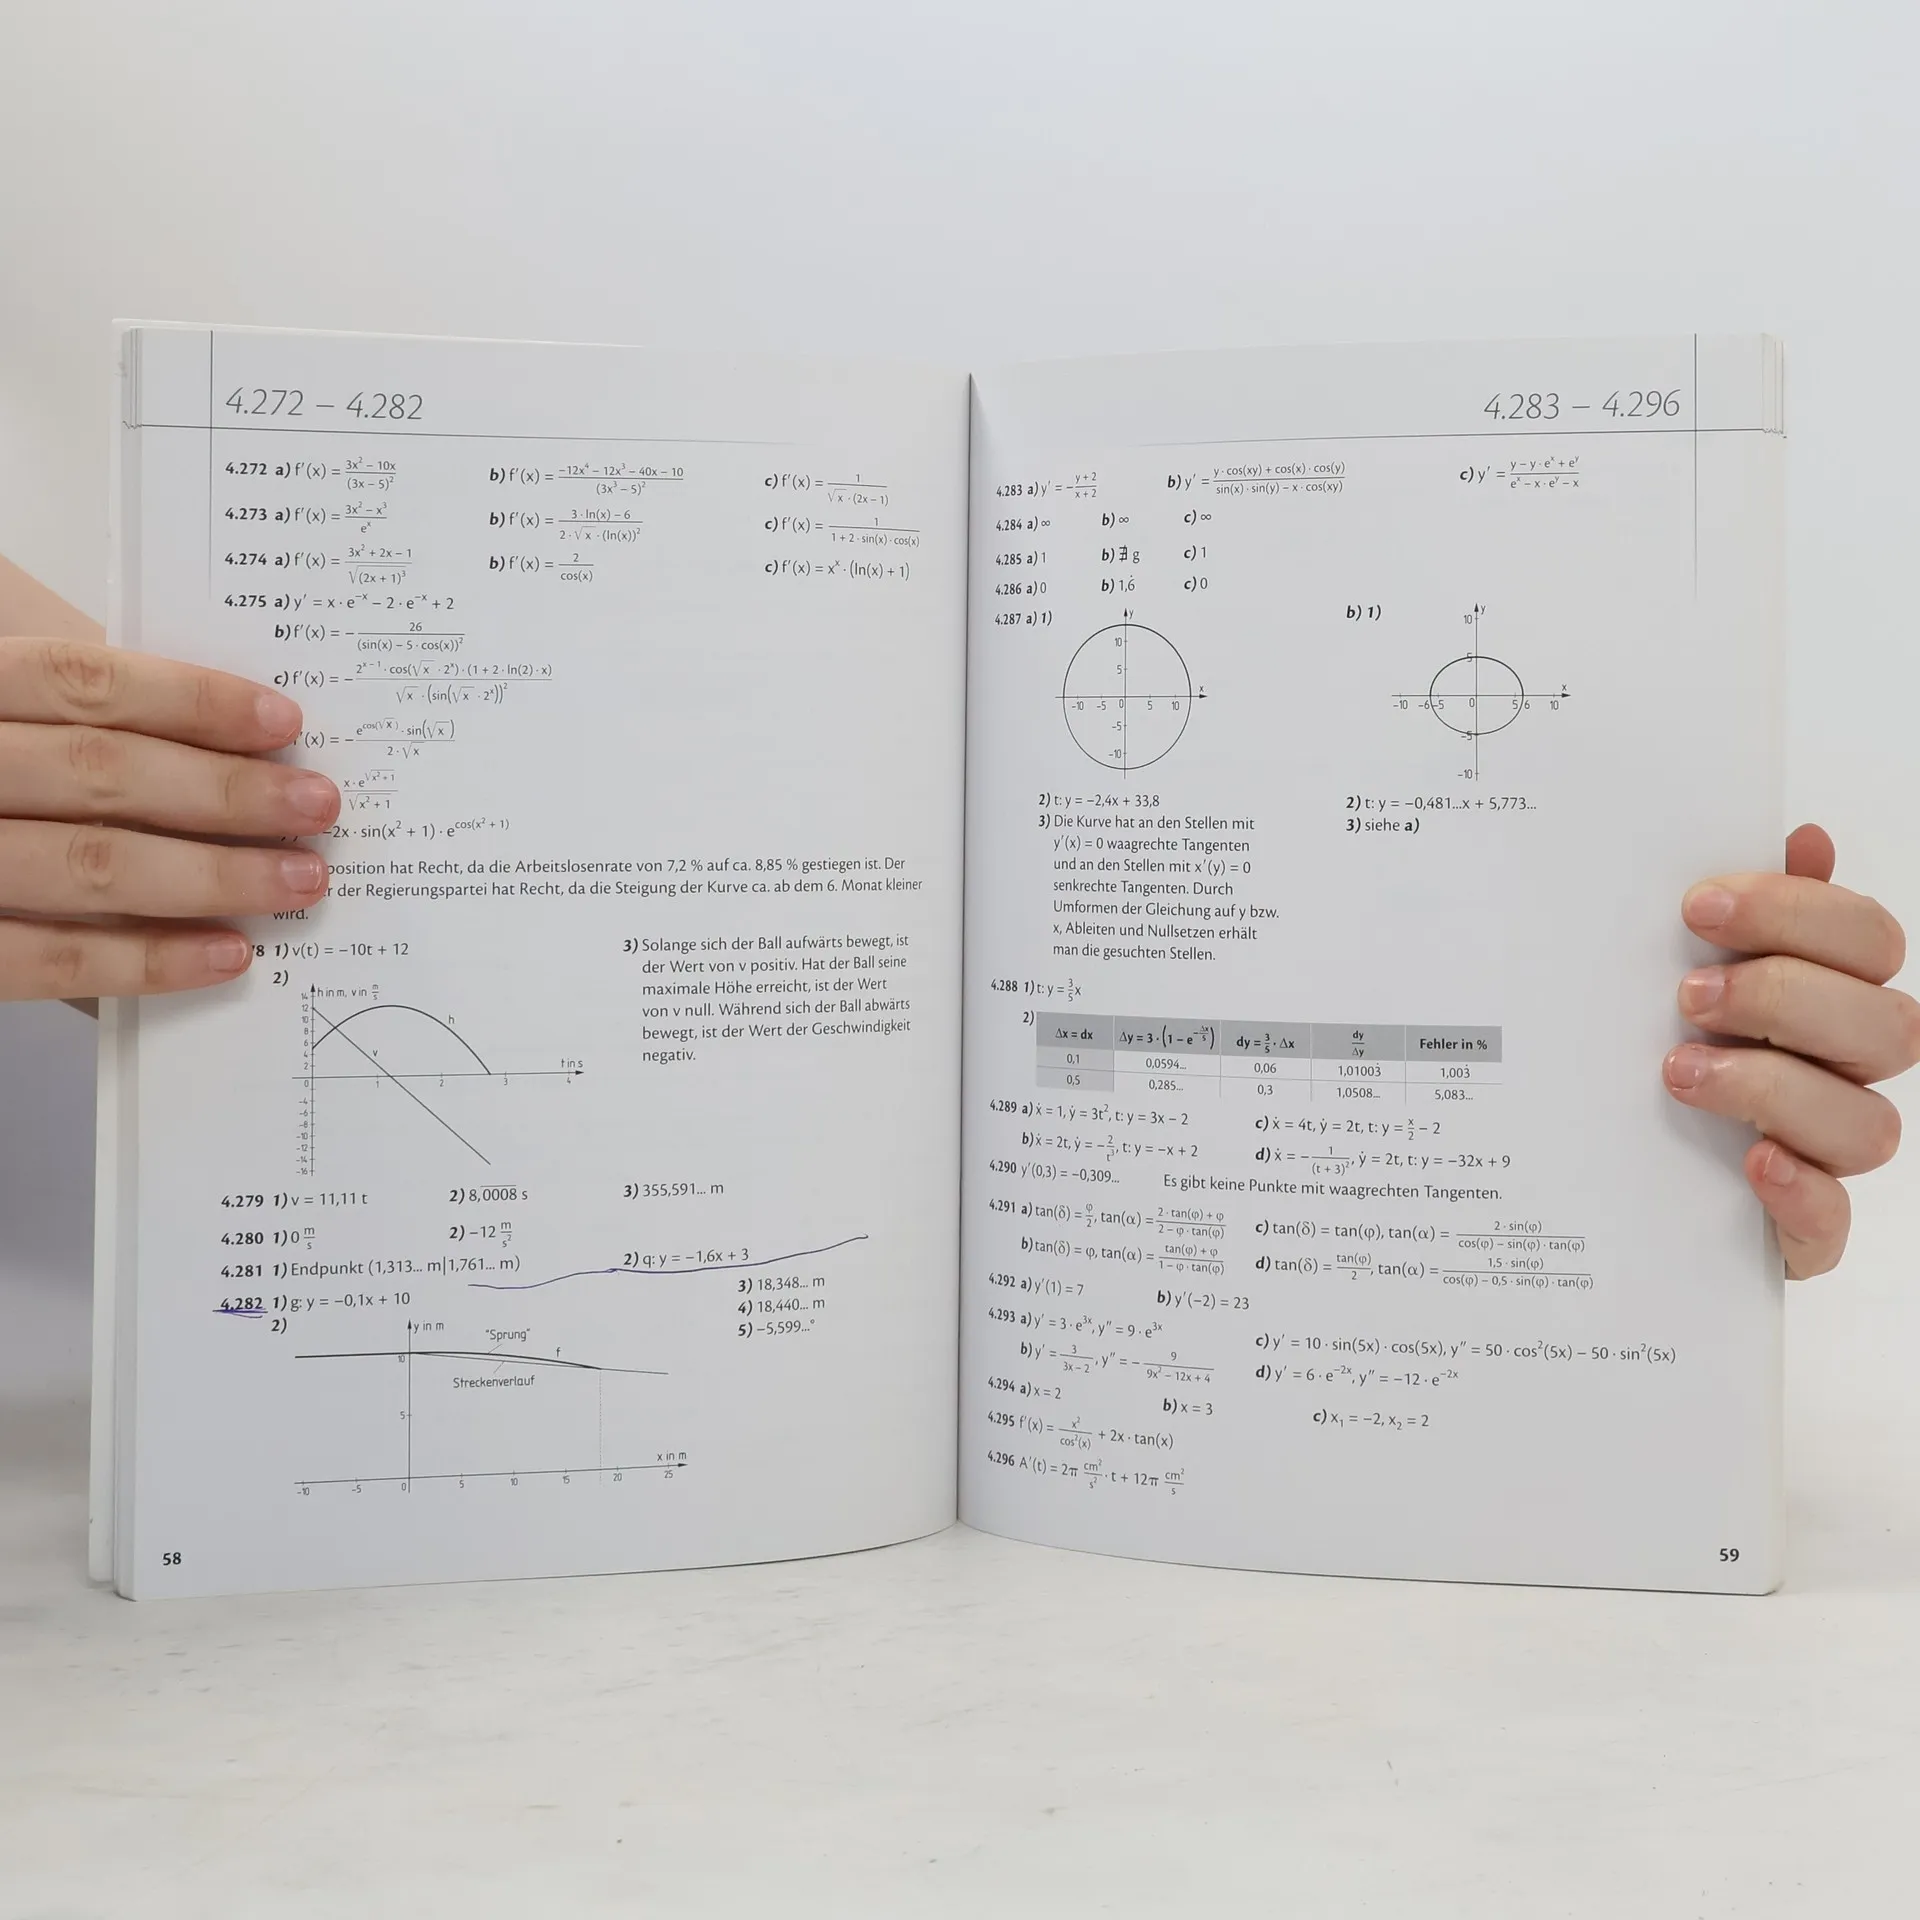 4.272 – 4.282
4.272 a) f'(x) = (3x² – 10x)/(3x – 5)² b) f'(x) = (–12x⁴ – 12x³ – 40x – 10)/(3x³ – 5)² c) f'(x) = 1/(√x · (2x – 1))
4.273 a) f'(x) = (3x² – x³)/eˣ b) f'(x) = (3 · ln(x) – 6)/(2 · √x · (ln(x))²) c) f'(x) = 1/(1 + 2 · sin(x) · cos(x))
4.274 a) f'(x) = (3x² + 2x – 1)/√(2x + 1)³ b) f'(x) = 2/cos(x) c) f'(x) = xˣ · (ln(x) + 1)
4.275 a) y' = x · e⁻ˣ – 2 · e⁻ˣ + 2
b) f'(x) = – 26/(sin(x) – 5 · cos(x))²
c) f'(x) = – (2ˣ⁻¹ · cos(√x · 2ˣ) · (1 + 2 · ln(2) · x))/(√x · (sin(√x · 2ˣ))²)
'(x) = – (e^cos(√x) · sin(√x))/(2 · √x)
(x · e^√(x² + 1))/√(x² + 1)
–2x · sin(x² + 1) · e^cos(x² + 1)
position hat Recht, da die Arbeitslosenrate von 7,2 % auf ca. 8,85 % gestiegen ist. Der
r der Regierungspartei hat Recht, da die Steigung der Kurve ca. ab dem 6. Monat kleiner
wird.
8 1) v(t) = –10t + 12
2)
h in m, v in m/s
14
12
10
8
6
4
2
0
–4
–6
–8
–10
–12
–14
–16
h
v
t in s
1 2 3 4
3) Solange sich der Ball aufwärts bewegt, ist
der Wert von v positiv. Hat der Ball seine
maximale Höhe erreicht, ist der Wert
von v null. Während sich der Ball abwärts
bewegt, ist der Wert der Geschwindigkeit
negativ.
4.279 1) v = 11,11 t 2) 8,0̅0̅0̅8̅ s 3) 355,591... m
4.280 1) 0 m/s 2) –12 m/s²
4.281 1) Endpunkt (1,313... m|1,761... m) 2) q: y = –1,6x + 3
4.282 1) g: y = –0,1x + 10
2)
3) 18,348... m
4) 18,440... m
5) –5,599...°
y in m
"Sprung"
f
10
Streckenverlauf
5
x in m
–10 –5 0 5 10 15 20 25
58
4.283 – 4.296
4.283 a) y' = – (y + 2)/(x + 2) b) y' = (y · cos(xy) + cos(x) · cos(y))/(sin(x) · sin(y) – x · cos(xy)) c) y' = (y – y · eˣ + eʸ)/(eˣ – x · eʸ – x)
4.284 a) ∞ b) ∞ c) ∞
4.285 a) 1 b) ∄ g c) 1
4.286 a) 0 b) 1,6̇ c) 0
4.287 a) 1) b) 1)
y
10
5
x
–10 –5 0 5 10
–5
–10
y
10
5
x
–10 –6 –5 0 5 6 10
–5
–10
2) t: y = –2,4x + 33,8
3) Die Kurve hat an den Stellen mit
y'(x) = 0 waagrechte Tangenten
und an den Stellen mit x'(y) = 0
senkrechte Tangenten. Durch
Umformen der Gleichung auf y bzw.
x, Ableiten und Nullsetzen erhält
man die gesuchten Stellen.
2) t: y = –0,481...x + 5,773...
3) siehe a)
4.288 1) t: y = 3/5 x
2)
Δx = dx Δy = 3 · (1 – e^(–Δx/5)) dy = 3/5 · Δx dy/Δy Fehler in %
0,1 0,0594... 0,06 1,01003̇ 1,003̇
0,5 0,285... 0,3 1,0508... 5,083...
4.289 a) ẋ = 1, ẏ = 3t², t: y = 3x – 2 c) ẋ = 4t, ẏ = 2t, t: y = x/2 – 2
b) ẋ = 2t, ẏ = – 2/t³, t: y = –x + 2 d) ẋ = – 1/(t + 3)², ẏ = 2t, t: y = –32x + 9
4.290 y'(0,3) = –0,309... Es gibt keine Punkte mit waagrechten Tangenten.
4.291 a) tan(δ) = φ/2, tan(α) = (2 · tan(φ) + φ)/(2 – φ · tan(φ)) c) tan(δ) = tan(φ), tan(α) = (2 · sin(φ))/(cos(φ) – sin(φ) · tan(φ))
b) tan(δ) = φ, tan(α) = (tan(φ) + φ)/(1 – φ · tan(φ)) d) tan(δ) = tan(φ)/2, tan(α) = (1,5 · sin(φ))/(cos(φ) – 0,5 · sin(φ) · tan(φ))
4.292 a) y'(1) = 7 b) y'(–2) = 23
4.293 a) y' = 3 · e³ˣ, y'' = 9 · e³ˣ c) y' = 10 · sin(5x) · cos(5x), y'' = 50 · cos²(5x) – 50 · sin²(5x)
b) y' = 3/(3x – 2), y'' = – 9/(9x² – 12x + 4) d) y' = 6 · e⁻²ˣ, y'' = –12 · e⁻²ˣ
4.294 a) x = 2 b) x = 3 c) x₁ = –2, x₂ = 2
4.295 f'(x) = x²/cos²(x) + 2x · tan(x)
4.296 A'(t) = 2π cm²/s² · t + 12π cm²/s
59